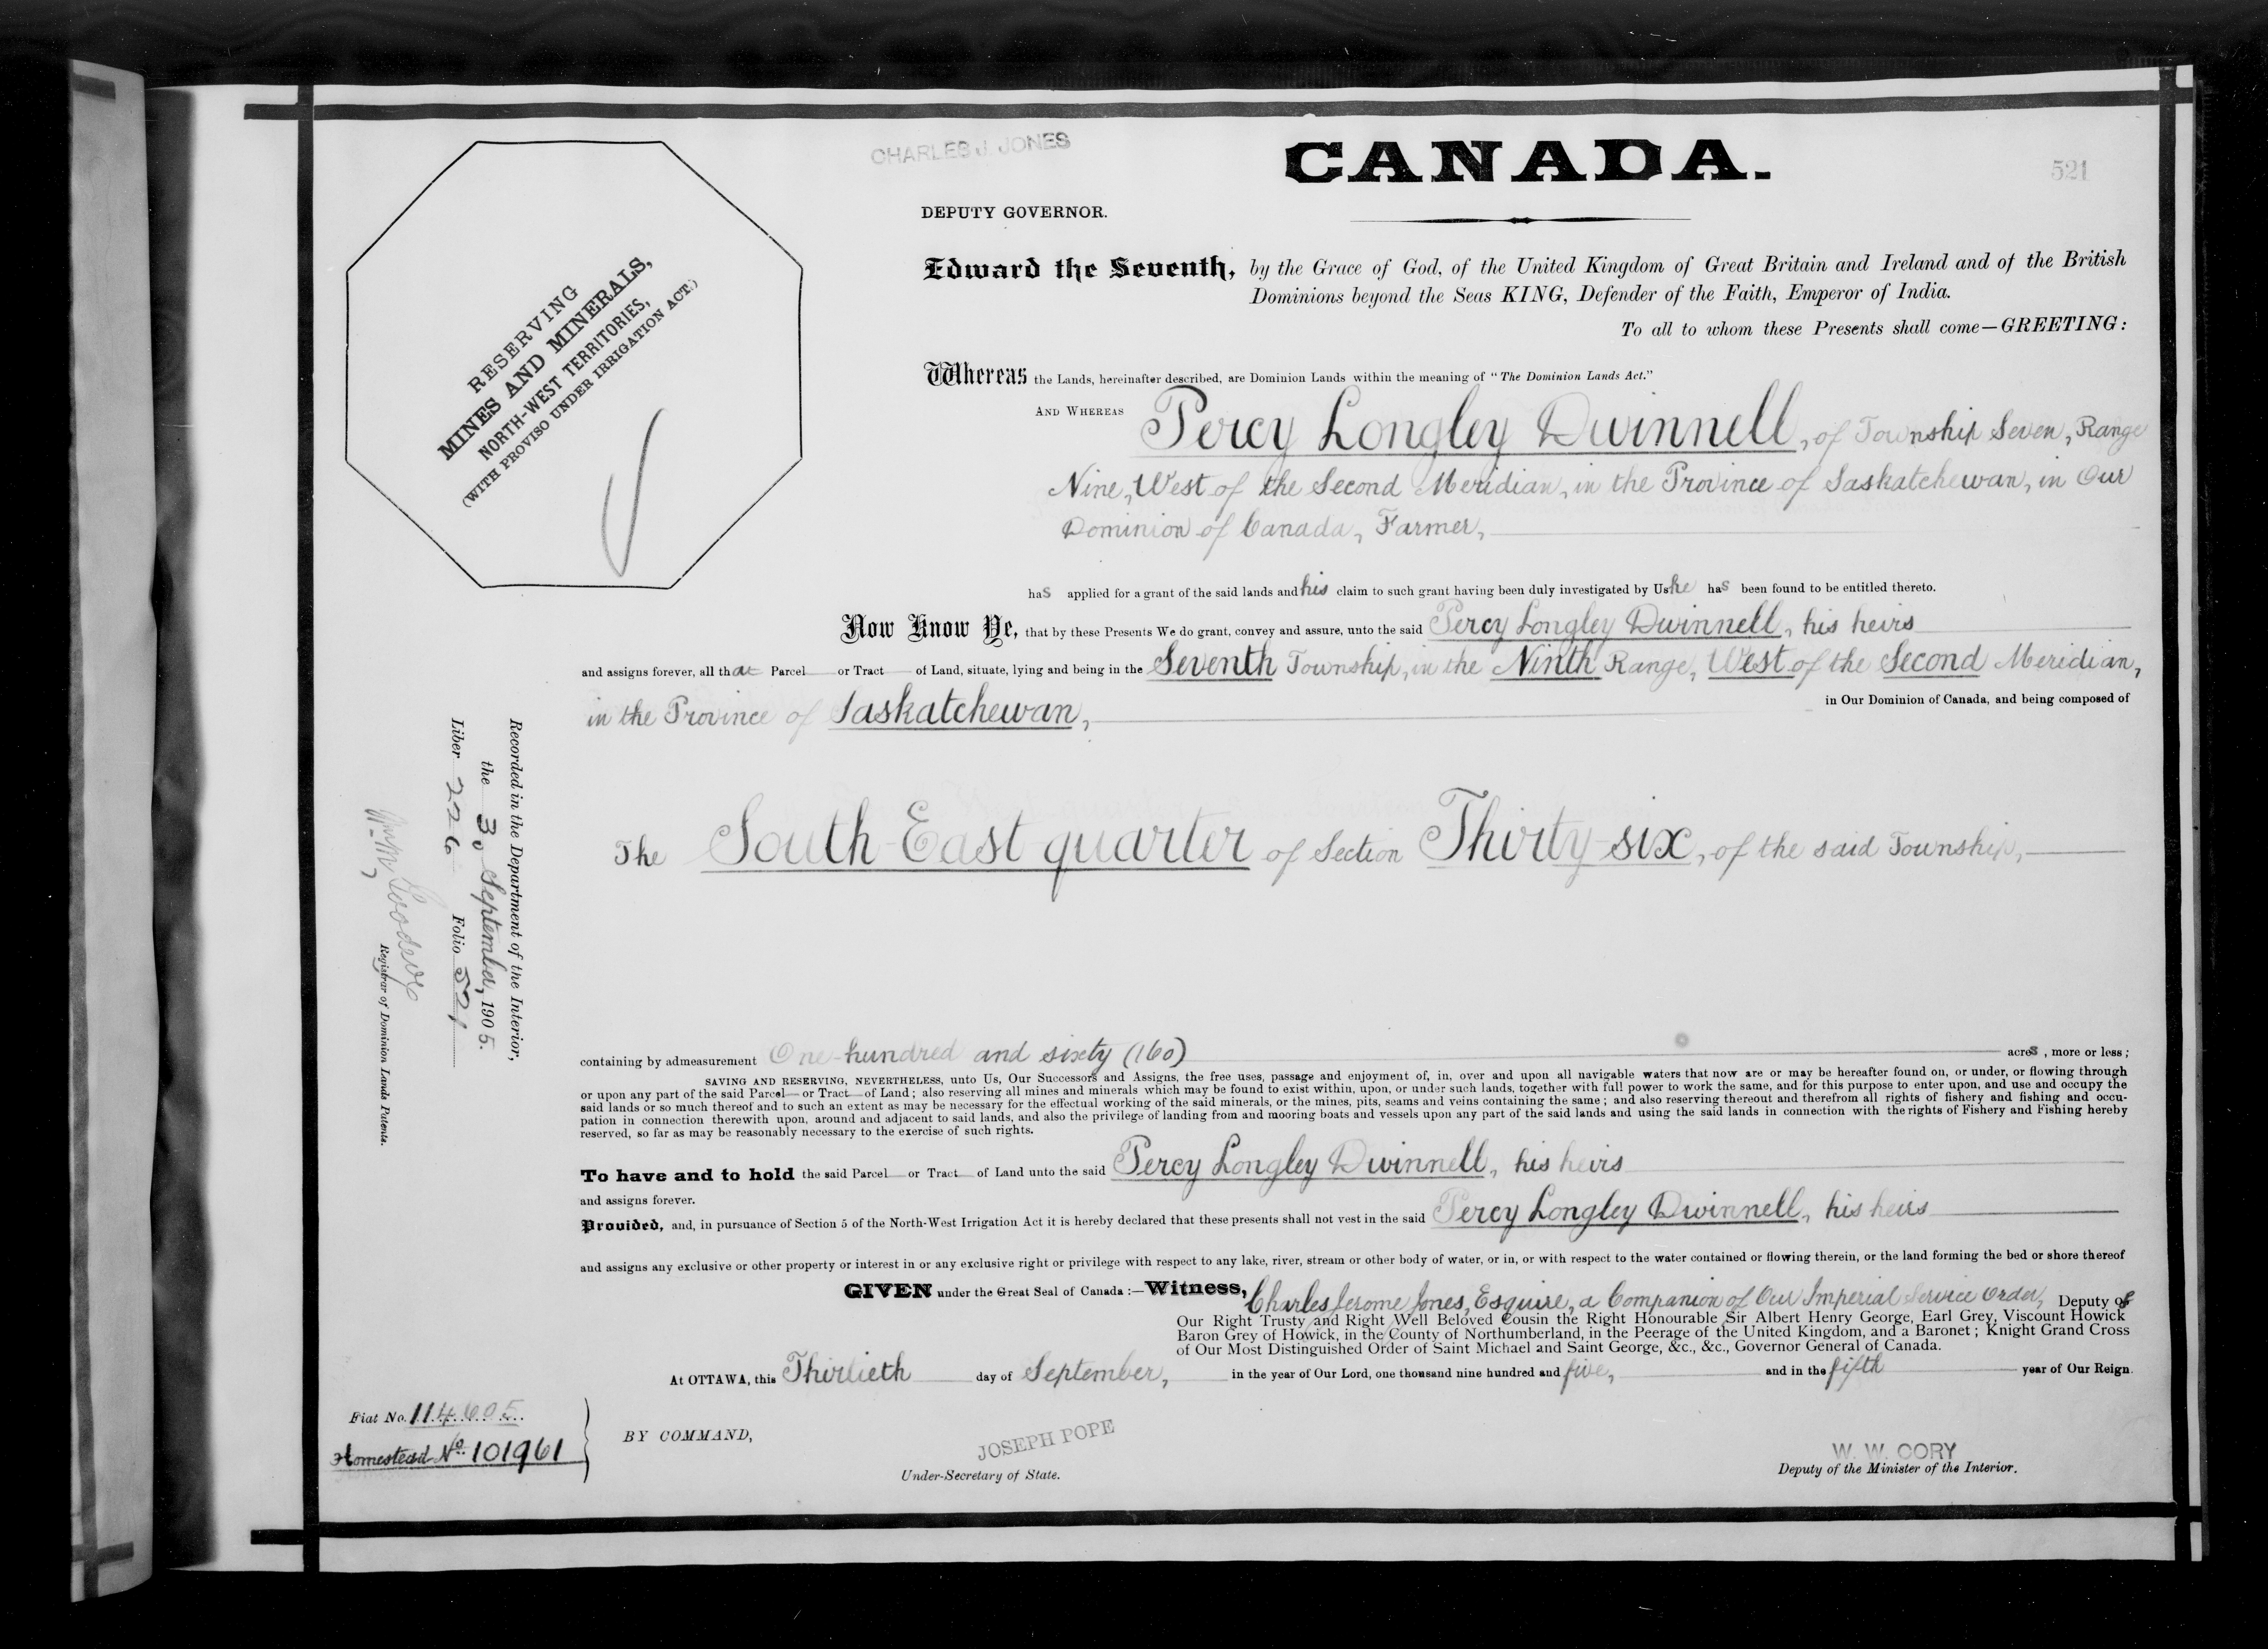 CHARLES J. JONES
CANADA.
521
DEPUTY GOVERNOR.
RESERVING
MINES AND MINERALS,
NORTH-WEST TERRITORIES,
(WITH PROVISO UNDER IRRIGATION ACT.)
Edward the Seventh, by the Grace of God, of the United Kingdom of Great Britain and Ireland and of the British
Dominions beyond the Seas KING, Defender of the Faith, Emperor of India.
To all to whom these Presents shall come—GREETING:
Whereas the Lands, hereinafter described, are Dominion Lands within the meaning of "The Dominion Lands Act."
AND WHEREAS Percy Longley Dwinnell, of Township Seven, Range
Nine, West of the Second Meridian, in the Province of Saskatchewan, in Our
Dominion of Canada, Farmer,
has applied for a grant of the said lands and his claim to such grant having been duly investigated by Us he has been found to be entitled thereto.
Now Know Ye, that by these Presents We do grant, convey and assure, unto the said Percy Longley Dwinnell, his heirs
and assigns forever, all that Parcel or Tract of Land, situate, lying and being in the Seventh Township, in the Ninth Range, West of the Second Meridian,
in the Province of Saskatchewan, in Our Dominion of Canada, and being composed of
The South East quarter of Section Thirty-six, of the said Township,
Recorded in the Department of the Interior,
the 30 September, 1905.
Liber 226 Folio 521
Registrar of Dominion Lands Patents.
containing by admeasurement One hundred and sixty (160) acres, more or less;
SAVING AND RESERVING, NEVERTHELESS, unto Us, Our Successors and Assigns, the free uses, passage and enjoyment of, in, over and upon all navigable waters that now are or may be hereafter found on, or under, or flowing through
or upon any part of the said Parcel or Tract of Land; also reserving all mines and minerals which may be found to exist within, upon, or under such lands, together with full power to work the same, and for this purpose to enter upon, and use and occupy the
said lands or so much thereof and to such an extent as may be necessary for the effectual working of the said minerals, or the mines, pits, seams and veins containing the same; and also reserving thereout and therefrom all rights of fishery and fishing and occu-
pation in connection therewith upon, around and adjacent to said lands, and also the privilege of landing from and mooring boats and vessels upon any part of the said lands and using the said lands in connection with the rights of Fishery and Fishing hereby
reserved, so far as may be reasonably necessary to the exercise of such rights.
To have and to hold the said Parcel or Tract of Land unto the said Percy Longley Dwinnell, his heirs
and assigns forever.
Provided, and, in pursuance of Section 5 of the North-West Irrigation Act it is hereby declared that these presents shall not vest in the said Percy Longley Dwinnell, his heirs
and assigns any exclusive or other property or interest in or any exclusive right or privilege with respect to any lake, river, stream or other body of water, or in, or with respect to the water contained or flowing therein, or the land forming the bed or shore thereof
GIVEN under the Great Seal of Canada:—Witness, Charles Jerome Jones, Esquire, a Companion of Our Imperial Service Order, Deputy of
Our Right Trusty and Right Well Beloved Cousin the Right Honourable Sir Albert Henry George, Earl Grey, Viscount Howick
Baron Grey of Howick, in the County of Northumberland, in the Peerage of the United Kingdom, and a Baronet; Knight Grand Cross
of Our Most Distinguished Order of Saint Michael and Saint George, &c., &c., Governor General of Canada.
At OTTAWA, this Thirtieth day of September, in the year of Our Lord, one thousand nine hundred and five, and in the fifth year of Our Reign.
Fiat No. 114605
Homestead No. 101961
BY COMMAND,
JOSEPH POPE
Under-Secretary of State.
W. W. CORY
Deputy of the Minister of the Interior.